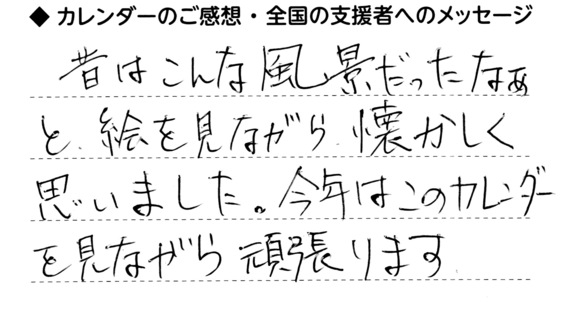 ◆ カレンダーのご感想・全国の支援者へのメッセージ
昔はこんな風景だったなぁ
と、絵を見ながら懐かしく
思いました。今年はこのカレンダー
を見ながら頑張ります